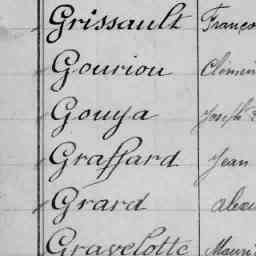 Grissault Franço
Gouriou Clémen
Gouya Joseph
Graffard Jean
Grard alex
Gravelotte Mauri